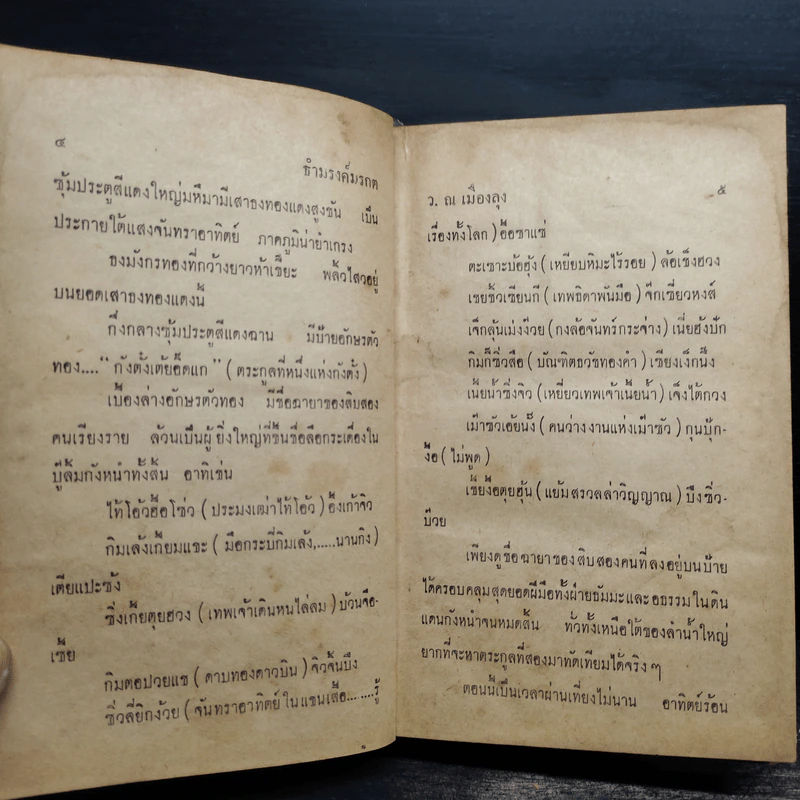 ๔
ธำมรงค์มรกต
ซุ้มประตูสีแดงใหญ่มหึมามีเสาธงทองแดงสูงชัน เป็น
ประกายใต้แสงจันทราอาทิตย์ ภาคภูมิน่ายำเกรง
ธงมังกรทองที่กว้างยาวห้าเชี๊ยะ พลิ้วไสวอยู่
บนยอดเสาธงทองแดงนี้
กึ่งกลางซุ้มประตูสีแดงฉาน มีป้ายอักษรตัว
ทอง....“ กังตั้งเต้ยอิ๊ดแก ” ( ตระกูลที่หนึ่งแห่งกังตั้ง )
เบื้องล่างอักษรตัวทอง มีชื่อฉายาของสิบสอง
คนเรียงราย ล้วนเป็นผู้ยิ่งใหญ่ที่ขึ้นชื่อลือกระเดื่องใน
บู๊ลิ้มกังหนำทั้งสิ้น อาทิเช่น
ไท้โอ้วฮื้อโซ่ว ( ประมงเฒ่าไท้โอ้ว ) อึ้งเก้าจิว
กิมเล้งเกี้ยมแขะ ( มือกระบี่กิมเล้ง,.....นานกิง )
เตียแปะซัง
ซิ่งเกี้ยตุยฮวง ( เทพเจ้าเดินหนไล่ลม ) บ้วนจือ-
เซี้ย
กิมตอปวยแช ( ดาบทองดาวบิน ) จิวจิ้นบึ๊ง
ซิ่วลี่ยิกง้วย ( จันทราอาทิตย์ในแขนเสื้อ.......รู้
ว. ณ เมืองลุง
๕
เรื่องทั้งโลก ) อื้อซาแซ่
ตะเซาะบ้อฮุ้ง ( เหยียบหิมะไร้รอย ) ล้อเช็งฮวง
เชยชิ้วเซียนกี ( เทพธิดาพันมือ ) จีกเซี่ยวหงส์
เจ็กลุ้นเม่งง้วย ( กงล้อจันทร์กระจ่าง ) เนี่ยฮังบัก
กิมก็ซิ่วสือ ( บัณฑิตธวัชทองคำ ) เซียงเง็กนั้ง
เนี้ยน้ำซิ่งจิว ( เหยี่ยวเทพเจ้าเนี้ยน้ำ ) เจ็งไต้กวง
เม้าซัวเอ้ยนั้ง ( คนว่างงานแห่งเม้าซัว ) กุนบุ๊ก-
งื้อ ( ไม่พูด )
เชี่ยงื้อตุยฮุ้น ( แย้มสรวลล่าวิญญาณ ) บึงซิ่ว-
ป๊วย
เพียงดูชื่อฉายาของสิบสองคนที่ลงอยู่บนป้าย
ได้ครอบคลุมสุดยอดฝีมือทั้งฝ่ายธัมมะและอธรรมในดิน
แดนกังหนำจนหมดสิ้น ทั่วทั้งเหนือใต้ของลำน้ำใหญ่
ยากที่จะหาตระกูลที่สองมาทัดเทียมได้จริง ๆ
ตอนนี้เป็นเวลาผ่านเที่ยงไม่นาน อาทิตย์ร้อน